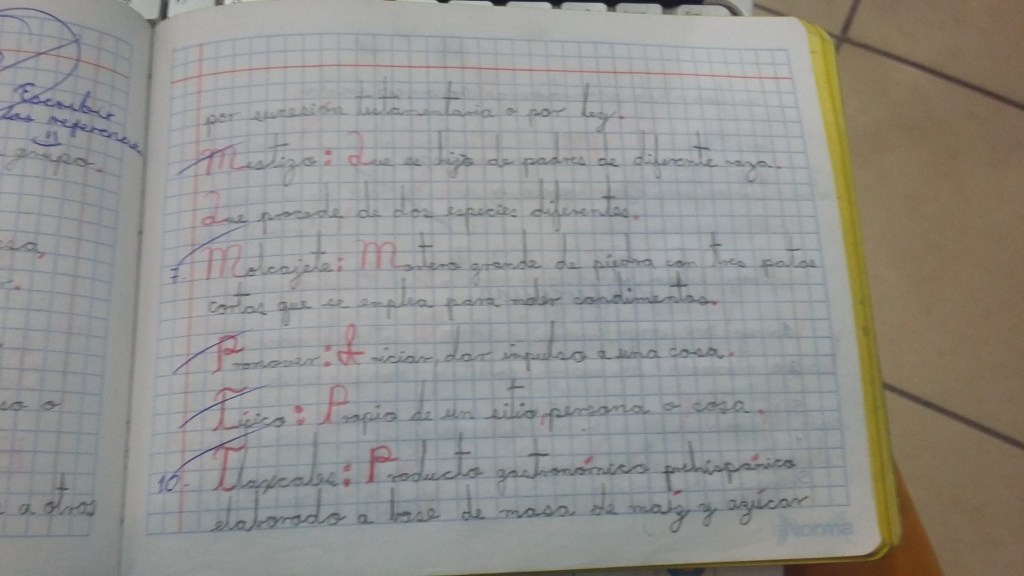 Escribir
las referencias
grupo.
a otros
por sucesión testamentaria o por ley.
Mestizo: Que es hijo de padres de diferente raza.
Que procede de dos especies diferentes.
Molcajete: Mortero grande de piedra con tres patas
cortas que se emplea para moler condimentos.
Promover: Iniciar, dar impulso a una cosa.
Típico: Propio de un sitio, persona o cosa.
10. Tlaxcales: Producto gastronómico prehispánico
elaborado a base de masa de maíz y azúcar
Norma